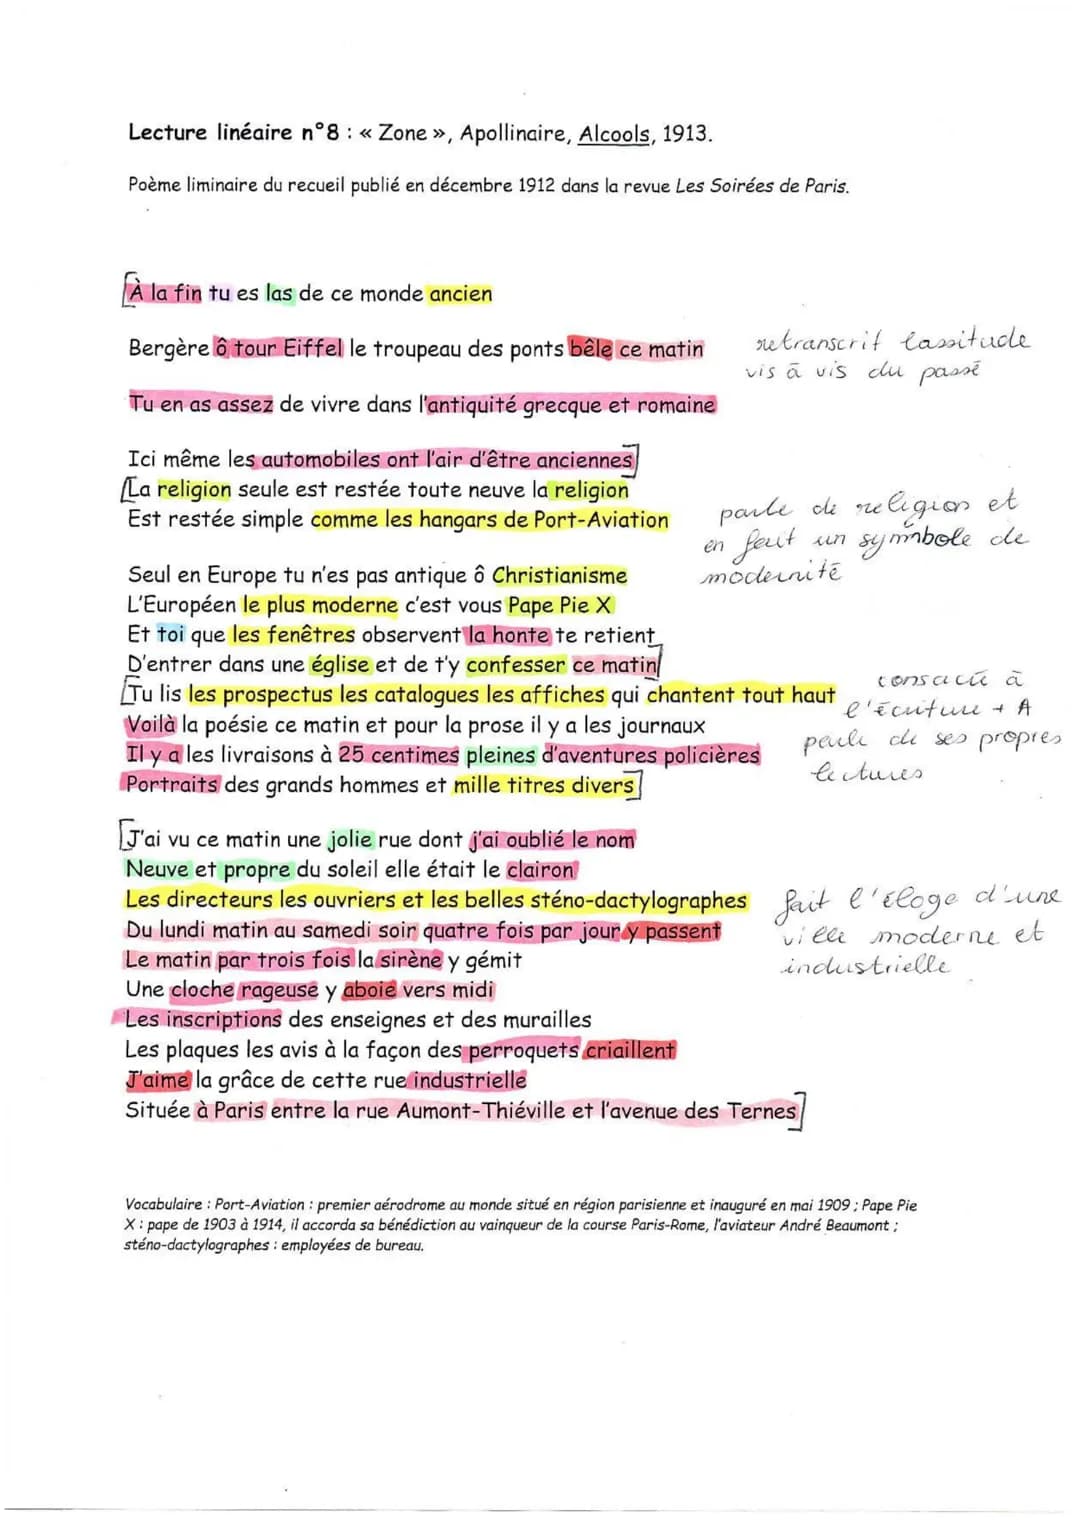 Lecture linéaire n°8 : « Zone », Apollinaire, Alcools, 1913.
Poème liminaire du recueil publié en décembre 1912 dans la revue Les Soirées de Paris.
[À la fin tu es las de ce monde ancien
Bergère ô tour Eiffel le troupeau des ponts bêle ce matin
retranscrit lassitude
vis à vis du passé
Tu en as assez de vivre dans l'antiquité grecque et romaine
Ici même les automobiles ont l'air d'être anciennes]
[La religion seule est restée toute neuve la religion
Est restée simple comme les hangars de Port-Aviation
parle de religion et
en fait un symbole de
modernité
Seul en Europe tu n'es pas antique ô Christianisme
L'Européen le plus moderne c'est vous Pape Pie X
Et toi que les fenêtres observent la honte te retient
D'entrer dans une église et de t'y confesser ce matin]
[Tu lis les prospectus les catalogues les affiches qui chantent tout haut
Voilà la poésie ce matin et pour la prose il y a les journaux
Il y a les livraisons à 25 centimes pleines d'aventures policières
Portraits des grands hommes et mille titres divers]
consacré à
l'écriture + A
parle de ses propres
lectures
[J'ai vu ce matin une jolie rue dont j'ai oublié le nom
Neuve et propre du soleil elle était le clairon
Les directeurs les ouvriers et les belles sténo-dactylographes
Du lundi matin au samedi soir quatre fois par jour y passent
Le matin par trois fois la sirène y gémit
Une cloche rageuse y aboie vers midi
Les inscriptions des enseignes et des murailles
Les plaques les avis à la façon des perroquets criaillent
J'aime la grâce de cette rue industrielle
Située à Paris entre la rue Aumont-Thiéville et l'avenue des Ternes]
fait l'éloge d'une
ville moderne et
industrielle
Vocabulaire : Port-Aviation : premier aérodrome au monde situé en région parisienne et inauguré en mai 1909 ; Pape Pie
X : pape de 1903 à 1914, il accorda sa bénédiction au vainqueur de la course Paris-Rome, l'aviateur André Beaumont ;
sténo-dactylographes : employées de bureau.